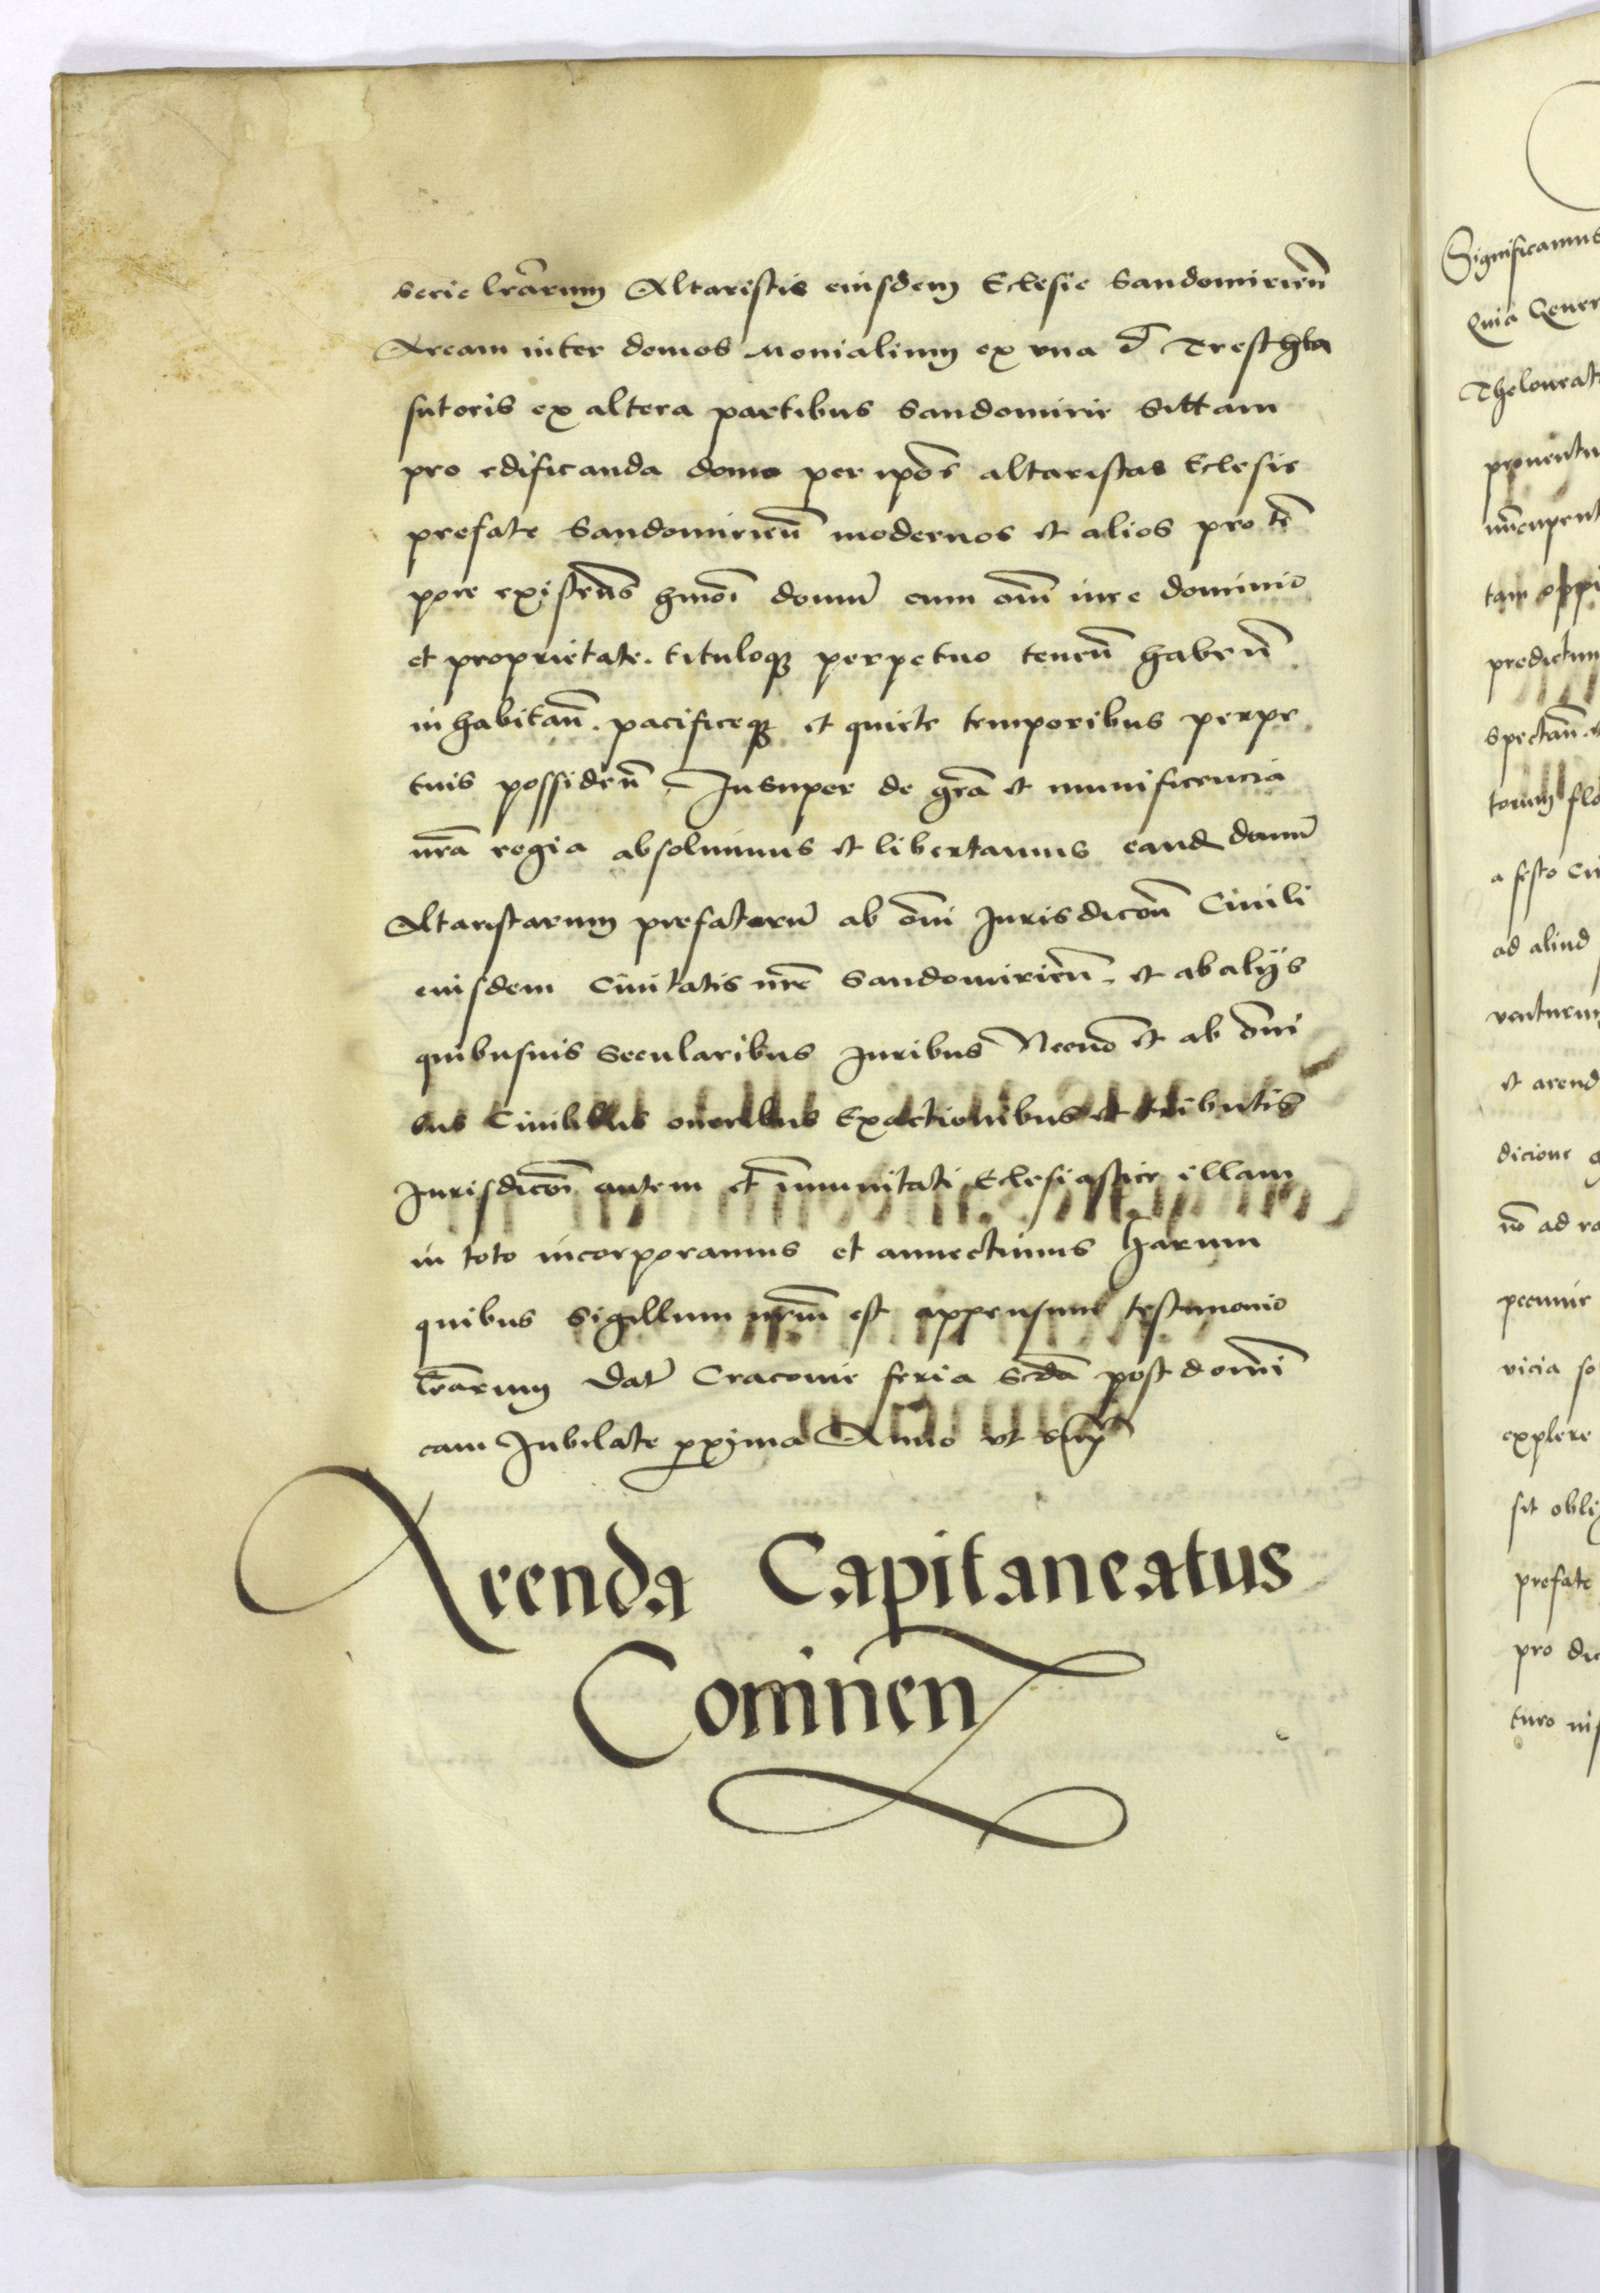 serie lrãrum Altaristis eiusdem Eclesie Sandomirieñ
Aream inter domos Monialium ex vna et Treschka
sutoris ex altera partibus Sandomirie Sittam
pro edificanda domo per ipõs altaristas Eclesie
prefate Sandomirieñ modernos et alios pro tẽ
pore existeñs hmõi domũ cum omĩ iure dominio
et proprietate. tituloqꝫ perpetuo teneñ habeñ
inhabitañ. pacificeqꝫ et quiete temporibus perpe
tuis possideñ Insuper de grã et munificencia
nrã regia absoluimus et libertamus eand domũ
Altaristarum prefatorũ ab oĩni Jurisdicõni Ciuili
eiusdem Ciuitatis nrẽ Sandomirieñ. et ab alijs
quibusuis secularibus Juribus Necnõ et ab omni
bus Ciuilibus oneribus Exactionibus et tributis
Jurisdicõni autem et ĩmunitati Eclesiastice illam
in toto incorporamus et annectimus harum
quibus Sigillum nrũm est appensum testimonio
lrãrum Dat̃ Cracouie feria Scdã post domĩ
cam Jubilate proxima Anno vt sup̃
Arenda Capitaneatus
Cominen
Significamus
Quia Gener
Theloneat
prouentu
nũcupent
tam oppi
predictum
spectañ. et
torum flo
a festo
ad aliud
venturum
et arend
dicione
nõ ad
pecunie
vicia so
explere
sit oblig
prefate
pro dic
turo nis